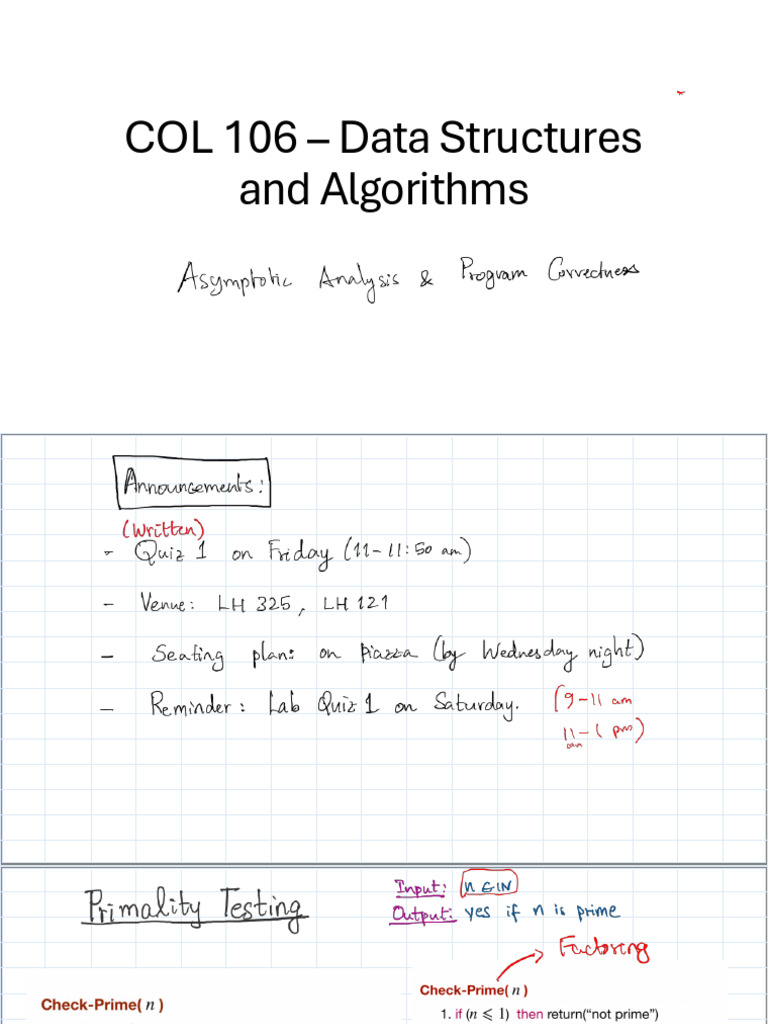 COL 106 – Data Structures
and Algorithms
Asymptotic Analysis & Program Correctness
Announcements:
(Written)
- Quiz 1 on Friday (11-11:50 am)
- Venue: LH 325, LH 121
- Seating plan: on Piazza (by Wednesday night)
- Reminder: Lab Quiz 1 on Saturday. (9-11 am
11 am - 1 pm)
Primality Testing
Input: n ∈ IN
Output: yes if n is prime
Factoring
Check-Prime( n )
Check-Prime( n )
1. if (n ⩽ 1) then return(“not prime”)